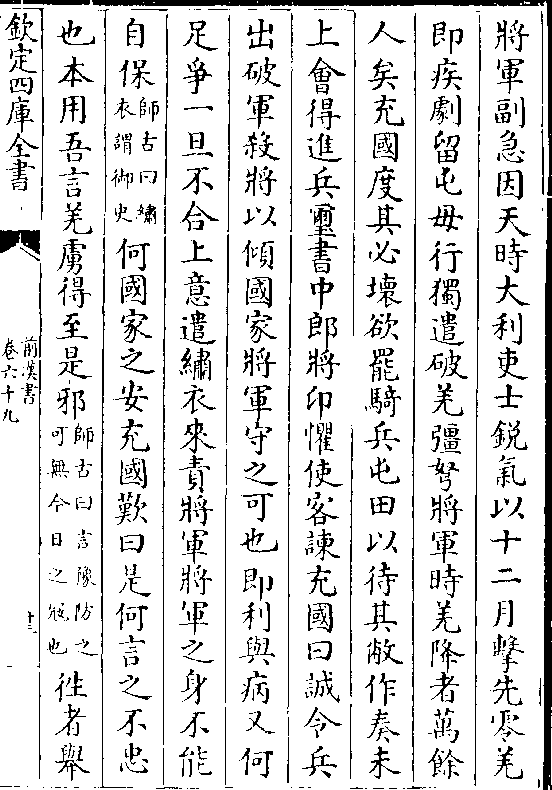 將軍副急因天時大利吏士銳氣以十二月擊先零羌
即疾劇留屯毋行獨遣破羌彊弩將軍時羌降者萬餘
人矣充國度其必壞欲罷騎兵屯田以待其敝作奏未
上會得進兵璽書中郎將卬懼使客諫充國曰誠令兵
出破軍殺將以傾國家將軍守之可也即利與病又何
足爭一旦不合上意遣繡衣來責將軍將軍之身不能
自保師古曰繡衣謂御史何國家之安充國歎曰是何言之不忠
也本用吾言羌虜得至是邪師古曰言豫防之可無今日之寇也徃者舉
欽定四庫全書
前漢書
卷六十九
十三